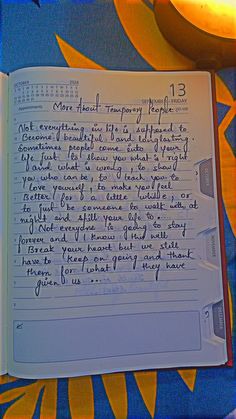 OCTOBER 2024
13
SEPTEMBER FRIDAY
Appointments
More About Temporary People
Not everything in life is supposed to
Become beautiful and longlasting.
Sometimes people come into your
life just to show you what is right
and what is wrong, to show
you who can be, to teach you to
love yourself, to make you feel
Better for a little while, or
to just be someone to walk with at
night and spill your life to.
Not everyone is going to stay
forever and I know this well
Break your heart but we still
have to keep on going and thank
them for what they have
given us ...
NOVEMBER
DECEMBER